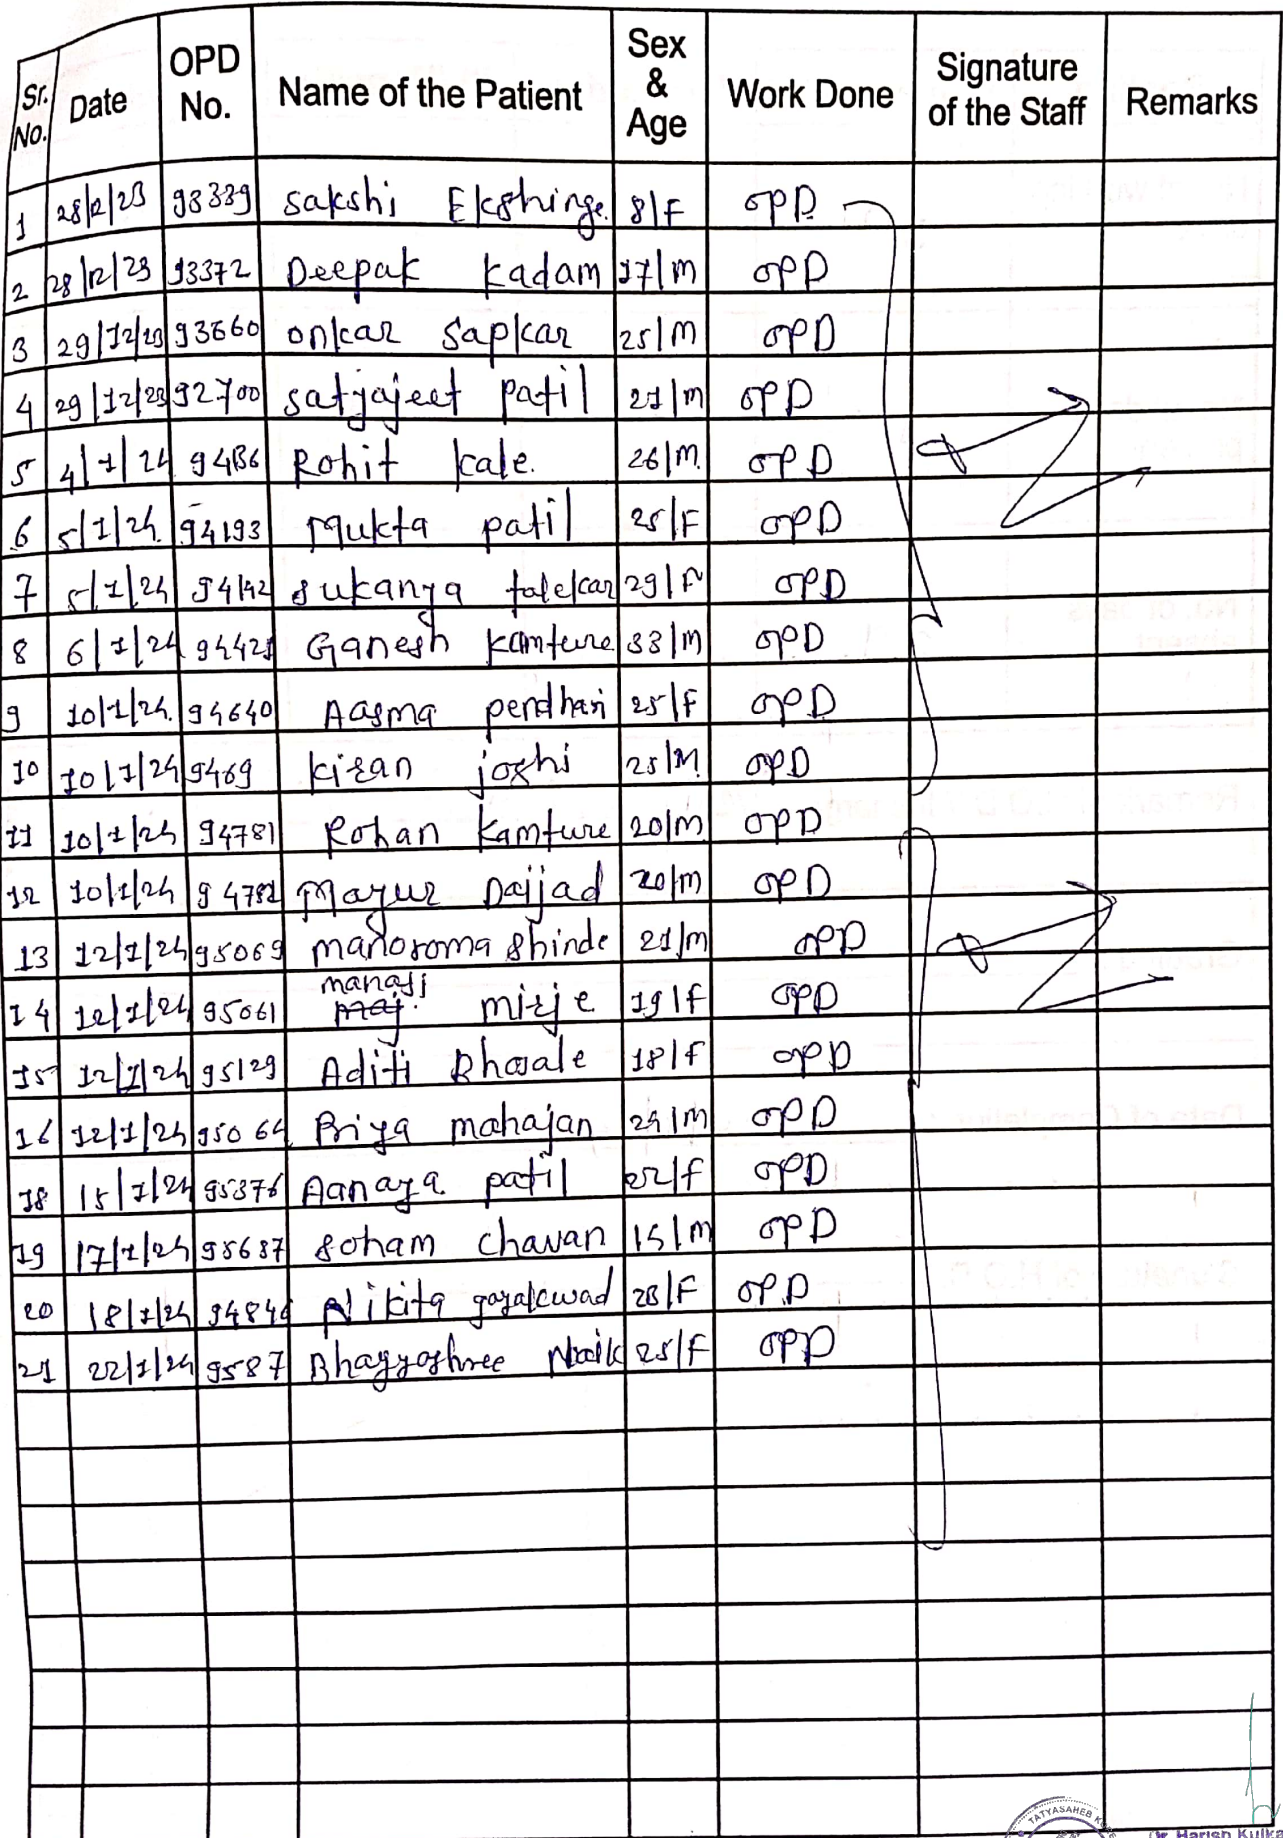 Sr. No. Date OPD No. Name of the Patient Sex & Age Work Done Signature of the Staff Remarks
1 28/12/23 93339 Sakshi Ekshinge 8/F OPD
2 28/12/23 93372 Deepak Kadam 17/M OPD
3 29/12/23 93660 Onkar Sapkar 25/M OPD
4 29/12/23 92700 Satjajeet Patil 21/M OPD
5 4/1/24 94136 Rohit Kale. 26/M. OPD
6 5/1/24. 94193 Mukta Patil 25/F OPD
7 5/1/24 94142 Sukanya talekar 29/F OPD
8 6/1/24 94421 Ganesh Kamture 33/M OPD
9 10/1/24. 94640 Aasma pendhari 25/F OPD
10 10/1/24 9469 Kiran joshi 25/M. OPD
11 10/1/24 94781 Rohan Kamture 20/M OPD
12 10/1/24 94782 Mayur Daijad 20/M OPD
13 12/1/24 95069 manoroma Shinde 21/M OPD
14 12/1/24 95061 manasi mirje 19/F OPD
15 12/1/24 95129 Aditi Bhosale 18/F OPD
16 12/1/24 95064 Priya mahajan 24/M OPD
18 15/1/24 95376 Aanaya patil 22/F OPD
19 17/1/24 95687 Soham chavan 15/M OPD
20 18/1/24 94846 Nikita gayakwad 23/F OPD
21 22/1/24 9587 Bhagyashree Naik 25/F OPD
TATYASAHEB
Dr. Harish Kulka